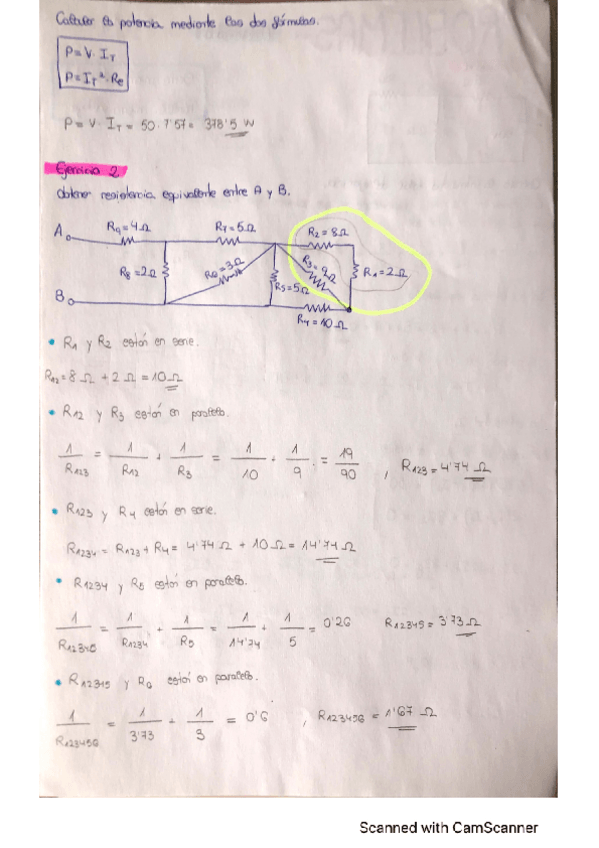 Calcular la potencia mediante las dos fórmulas.
P = V · I_T
P = I_T² · Re
P = V · I_T = 50 · 7'57 = 378'5 W
Ejercicio 2
Obtener resistencia equivalente entre A y B.
A
R9 = 4Ω
R7 = 5Ω
R2 = 8Ω
R8 = 2Ω
R6 = 3Ω
R3 = 9Ω
R1 = 2Ω
R5 = 5Ω
B
R4 = 10Ω
• R1 y R2 están en serie.
R12 = 8Ω + 2Ω = 10Ω
• R12 y R3 están en paralelo.
1/R123 = 1/R12 + 1/R3 = 1/10 + 1/9 = 19/90 , R123 = 4'74 Ω
• R123 y R4 están en serie.
R1234 = R123 + R4 = 4'74 Ω + 10Ω = 14'74 Ω
• R1234 y R5 están en paralelo.
1/R12345 = 1/R1234 + 1/R5 = 1/14'74 + 1/5 = 0'26 R12345 = 3'73 Ω
• R12345 y R6 están en paralelo.
1/R123456 = 1/3'73 + 1/3 = 0'6 , R123456 = 1'67 Ω
Scanned with CamScanner